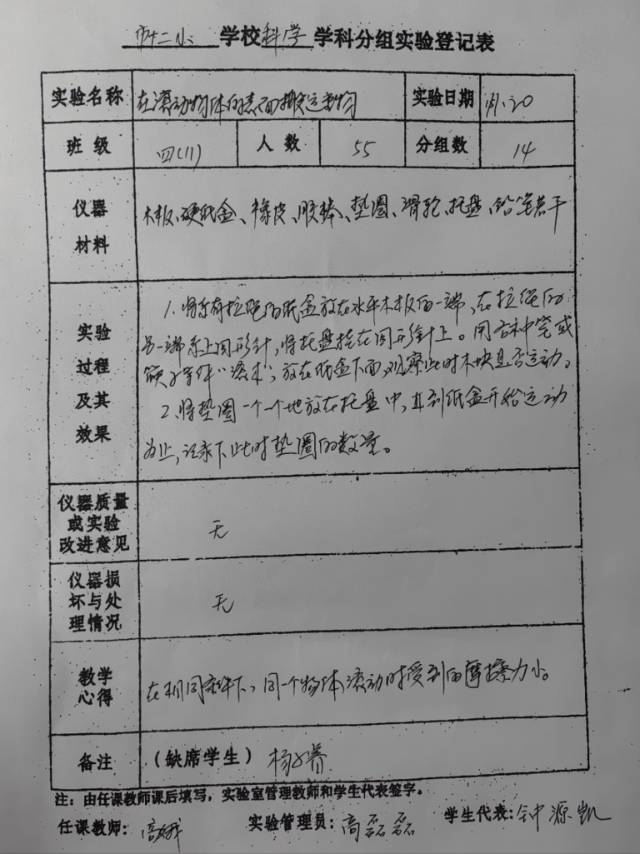 市十二小 学校 科学 学科分组实验登记表
实验名称 在滚动物体的表面搬运物 实验日期 11.20
班级 四(11) 人数 55 分组数 14
仪器材料
木板、硬纸盒、橡皮、胶棒、垫圈、滑轮、托盘、铅笔若干
实验过程及其效果
1.将系有拉绳的纸盒放在水平木板的一端,在拉绳的
另一端系上回形针,将托盘挂在回形针上。用
筷子等作“滚木”,放在纸盒下面,观察此时木块是否运动。
2.将垫圈一个一个地放在托盘中,直到纸盒开始运动
为止,记录下此时垫圈的数量。
仪器质量或实验改进意见 无
仪器损坏与处理情况 无
教学心得 在相同条件下,同一个物体滚动时受到的摩擦力小。
备注 (缺席学生) 杨子睿
注:由任课教师课后填写,实验室管理教师和学生代表签字。
任课教师: 高 实验管理员: 高磊磊 学生代表: 钟源凯